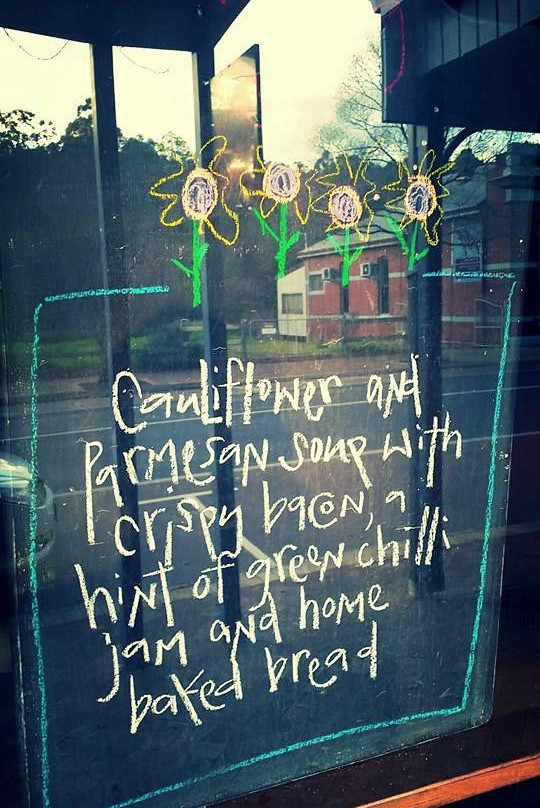 Cauliflower and
Parmesan soup with
crispy bacon, a
hint of green chilli
jam and home
baked bread